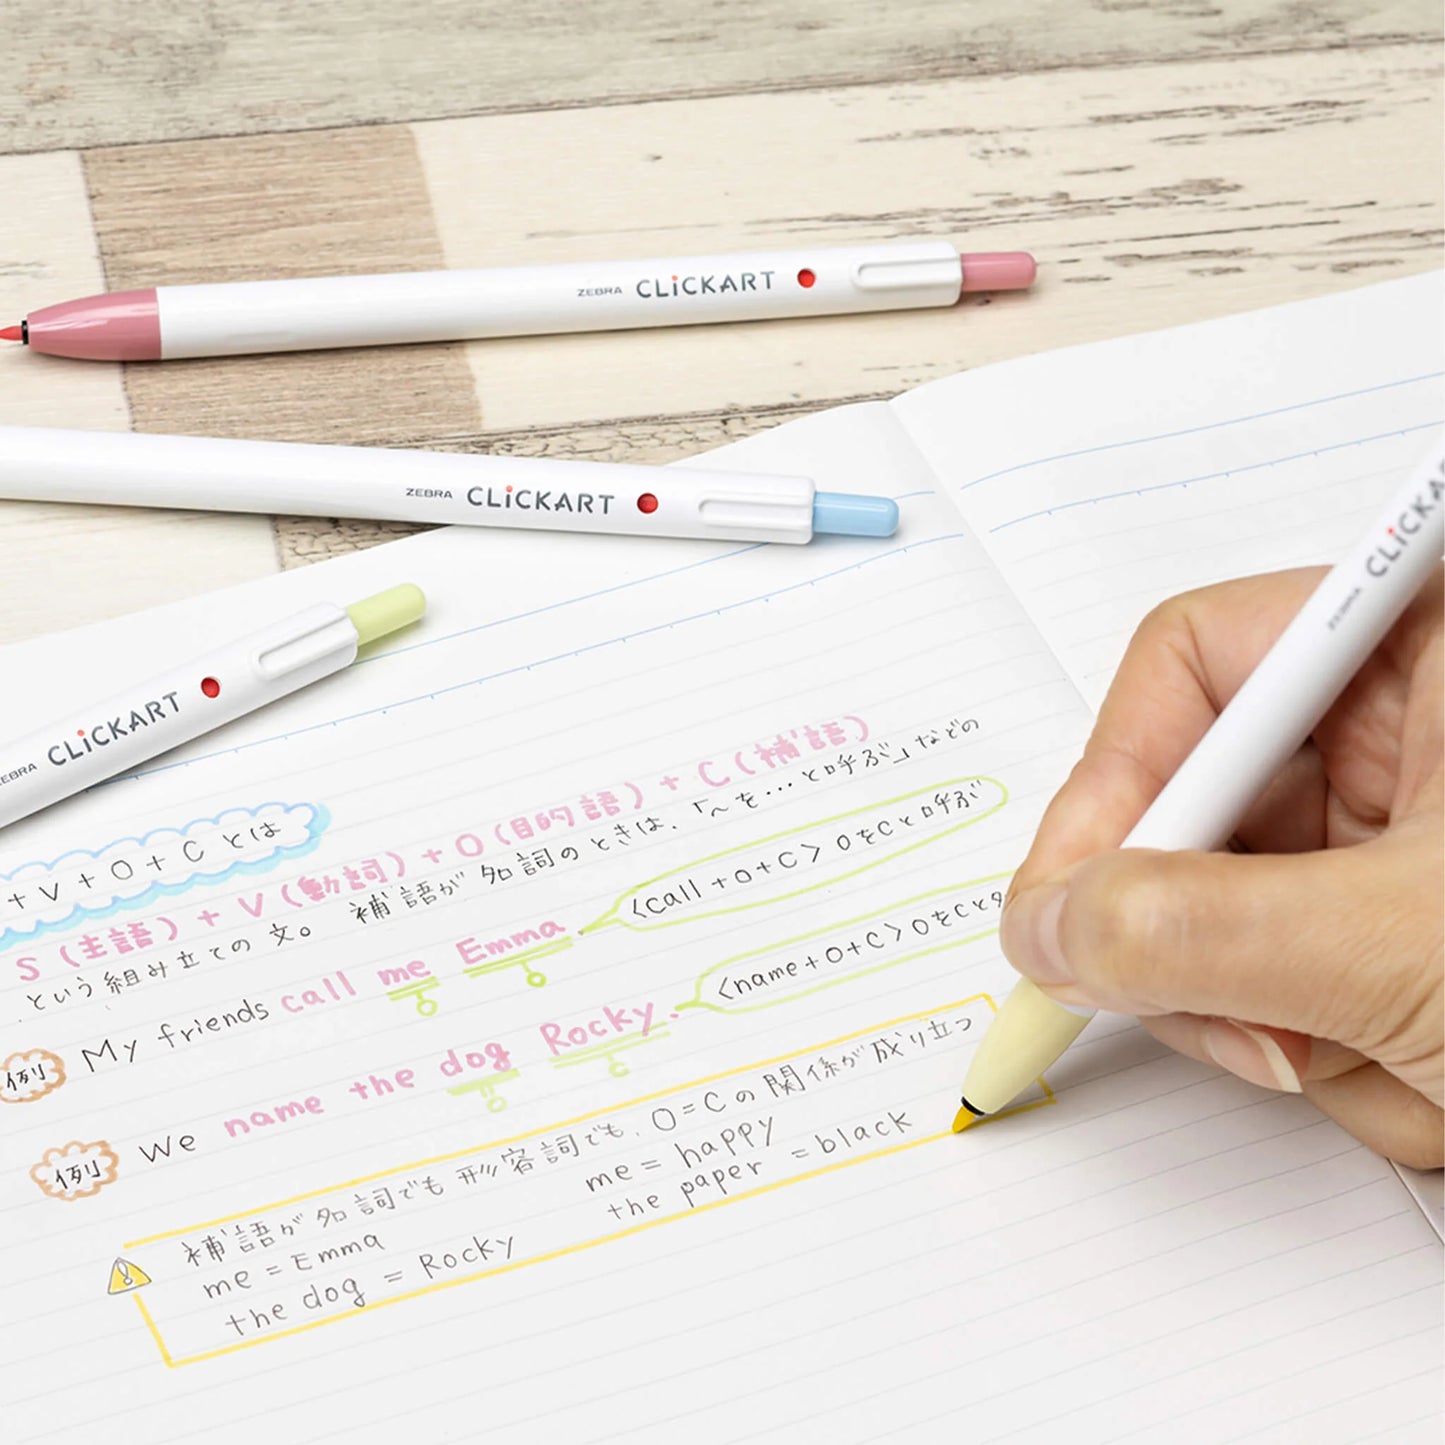 ZEBRA CLiCKART
ZEBRA CLiCKART
ZEBRA CLiCKART
ZEBRA CLICKA
+ V + O + C とは
S (主語) + V (動詞) + O (目的語) + C (補語)
という組み立ての文。 補語が名詞のときは、「~を…と呼ぶ」などの
例 My friends call me Emma.
O C
<call + O + C> OをCと呼ぶ
例 We name the dog Rocky.
O C
<name + O + C> OをCと
補語が名詞でも形容詞でも、O = C の関係が成り立つ
me = Emma me = happy
the dog = Rocky the paper = black